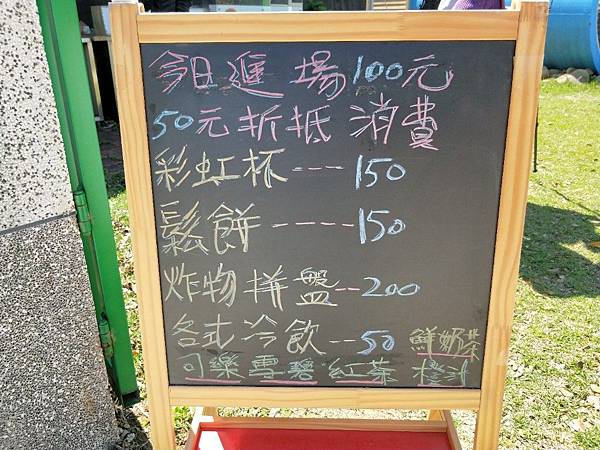 今日進場100元
50元折抵消費
彩虹杯---150
鬆餅----150
炸物拼盤--200
各式冷飲--50 鮮奶茶
可樂 雪碧 紅茶 橙汁